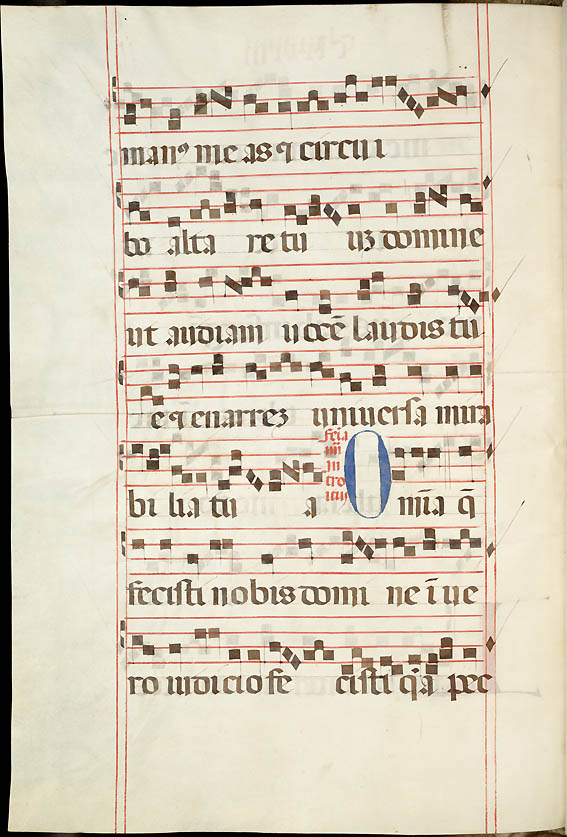 manꝰ me as ꞇ circu i
bo alta re tu uʒ domine
ut audiam uocē laudis tu
e ꞇ enarreʒ uniuersa mira
bi lia tu a
feria
iiii
in
tro
itus
O mīa q̄
fecisti nobis domi ne ī ue
ro iudicio fe cisti q̄a pec